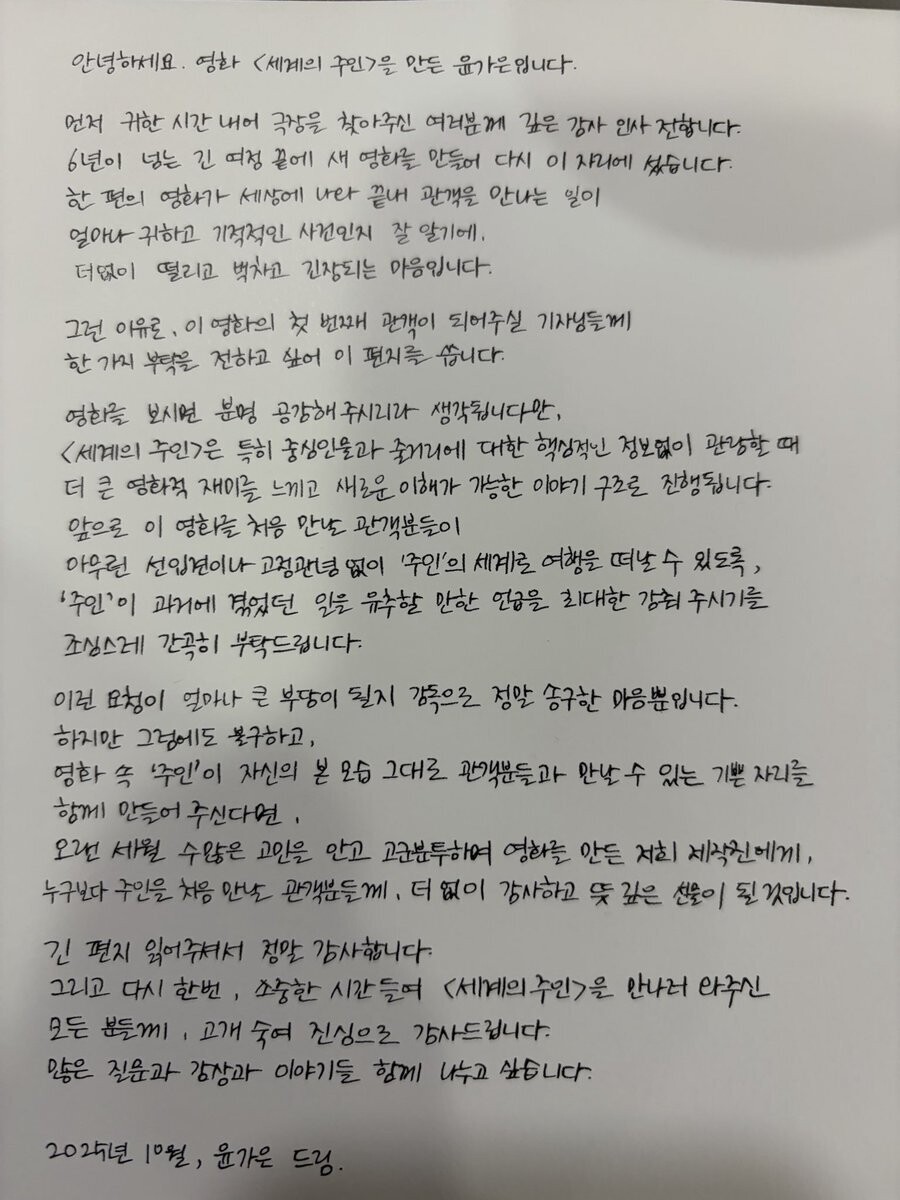 안녕하세요. 영화 <세계의 주인>을 만든 윤가은입니다.
먼저 귀한 시간 내어 극장을 찾아주신 여러분께 깊은 감사 인사 전합니다.
6년이 넘는 긴 여정 끝에 새 영화를 만들어 다시 이 자리에 섰습니다.
한 편의 영화가 세상에 나와 끝내 관객을 만나는 일이
얼마나 귀하고 기적적인 사건인지 잘 알기에,
더없이 떨리고 벅차고 긴장되는 마음입니다.
그런 이유로, 이 영화의 첫 번째 관객이 되어주실 기자님들께
한 가지 부탁을 전하고 싶어 이 편지를 씁니다.
영화를 보시면 분명 공감해주시리라 생각됩니다만,
<세계의 주인>은 특히 중심인물과 줄거리에 대한 핵심적인 정보없이 관람할 때
더 큰 영화적 재미를 느끼고 새로운 이해가 가능한 이야기 구조로 진행됩니다.
앞으로 이 영화를 처음 만날 관객분들이
아무런 선입견이나 고정관념 없이 '주인'의 세계로 여행을 떠날 수 있도록,
'주인'이 과거에 겪었던 일을 유추할 만한 언급을 최대한 감춰 주시기를
조심스레 간곡히 부탁드립니다.
이런 요청이 얼마나 큰 부담이 될지 감독으로 정말 송구한 마음뿐입니다.
하지만 그럼에도 불구하고,
영화 속 '주인'이 자신의 본 모습 그대로 관객분들과 만날 수 있는 기쁜 자리를
함께 만들어 주신다면,
오랜 세월 수많은 고민을 안고 고군분투하며 영화를 만든 저희 제작진에게,
누구보다 주인을 처음 만날 관객분들께, 더 없이 감사하고 뜻 깊은 선물이 될 것입니다.
긴 편지 읽어주셔서 정말 감사합니다.
그리고 다시 한번, 소중한 시간 들여 <세계의 주인>을 만나러 와주신
모든 분들께, 고개 숙여 진심으로 감사드립니다.
많은 질문과 감상과 이야기들 함께 나누고 싶습니다.
2025년 10월, 윤가은 드림.